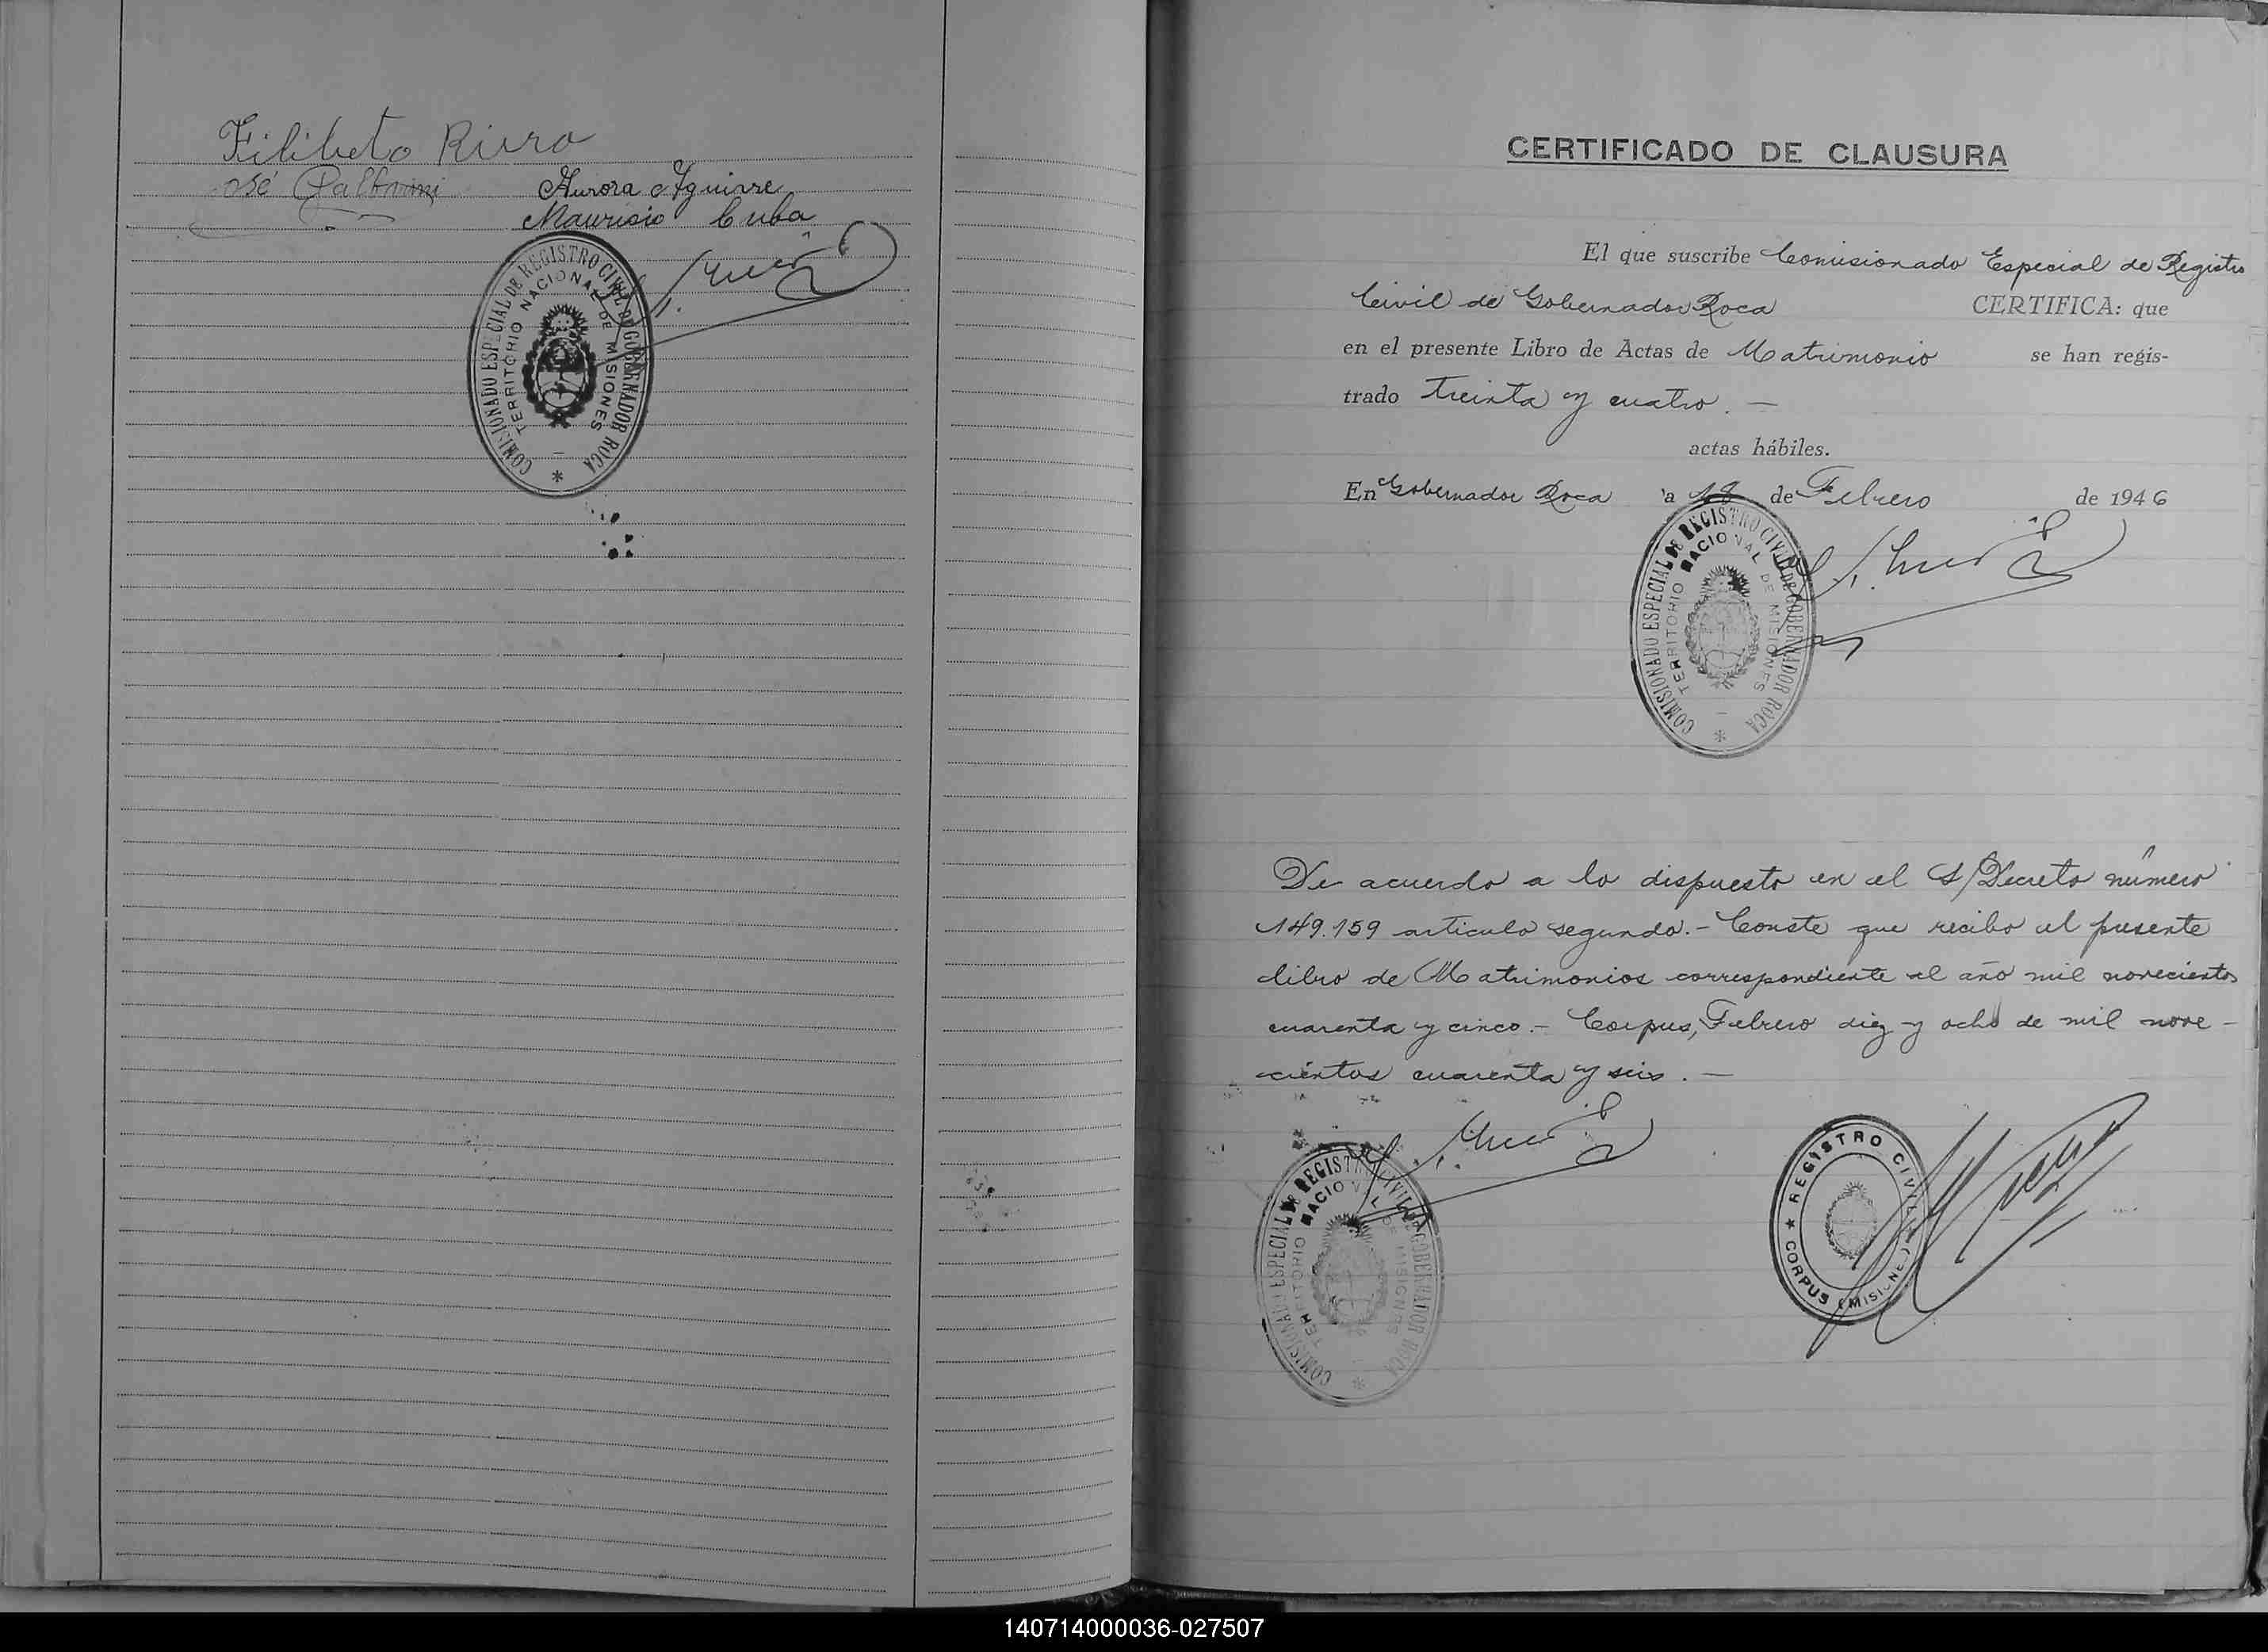 Filiberto
José
Aurora Aguirre
Mauricio Cuba
COMISIONADO ESPECIAL DE REGISTRO CIVIL DE GOBERNADOR ROCA
TERRITORIO NACIONAL DE MISIONES
CERTIFICADO DE CLAUSURA
El que suscribe Comisionado Especial de Registro
Civil de Gobernador Roca CERTIFICA: que
en el presente Libro de Actas de Matrimonio se han regis-
trado treinta y cuatro. —
actas hábiles.
En Gobernador Roca a 18 de Febrero de 1946
COMISIONADO ESPECIAL DE REGISTRO CIVIL DE GOBERNADOR ROCA
TERRITORIO NACIONAL DE MISIONES
De acuerdo a lo dispuesto en el S/Decreto número
149.159 articulo segundo.- Conste que recibo el presente
libro de Matrimonios correspondiente al año mil novecientos
cuarenta y cinco.- Corpus, Febrero diez y ocho de mil nove-
cientos cuarenta y seis. —
COMISIONADO ESPECIAL DE REGISTRO CIVIL DE GOBERNADOR ROCA
TERRITORIO NACIONAL DE MISIONES
REGISTRO CIVIL
CORPUS (MISIONES)
140714000036-027507